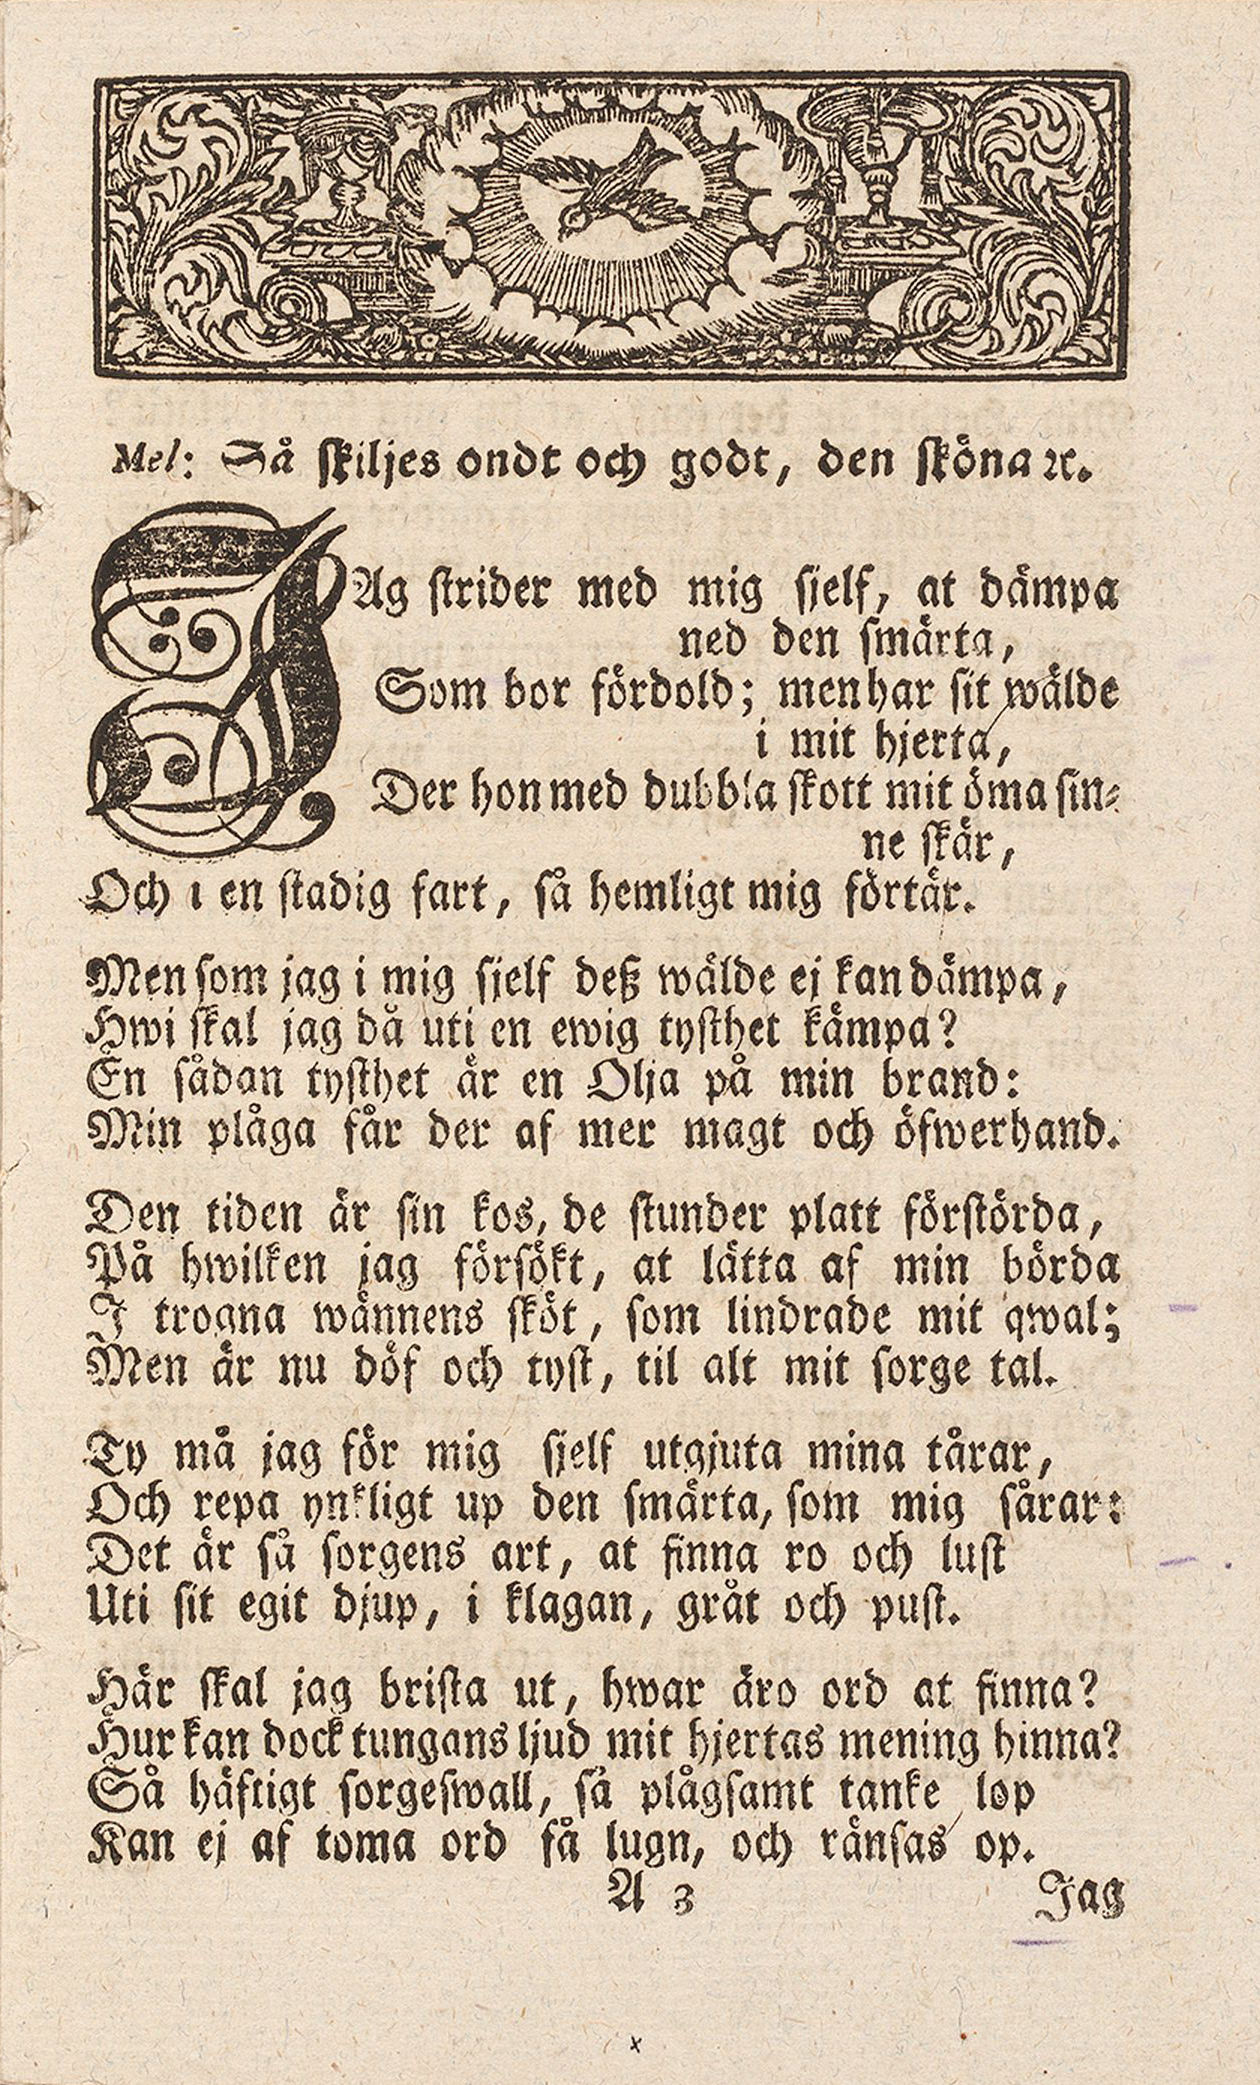 Mel: Så skiljes ondt och godt, den sköna ꝛc.
JAg strider med mig sjelf, at dämpa
ned den smärta,
Som bor fördold; men har sit wälde
i mit hjerta,
Der hon med dubbla skott mit öma sin-
ne skär,
Och i en stadig fart, så hemligt mig förtär.
Men som jag i mig sjelf deß wälde ej kan dämpa,
Hwi skal jag då uti en ewig tysthet kämpa?
En sådan tysthet är en Olja på min brand:
Min plåga får der af mer magt och öfwerhand.
Den tiden är sin kos, de stunder platt förstörda,
På hwilken jag försökt, at lätta af min börda
I trogna wännens sköt, som lindrade mit qwal;
Men är nu döf och tyst, til alt mit sorge tal.
Ty må jag för mig sjelf utgjuta mina tårar,
Och repa ynkligt up den smärta, som mig sårar:
Det är så sorgens art, at finna ro och lust
Uti sit egit djup, i klagan, gråt och pust.
Här skal jag brista ut, hwar äro ord at finna?
Hur kan dock tungans ljud mit hjertas mening hinna?
Så häftigt sorgeswall, så plågsamt tanke lop
Kan ej af toma ord få lugn, och ränsas op.
A 3 Jag
x